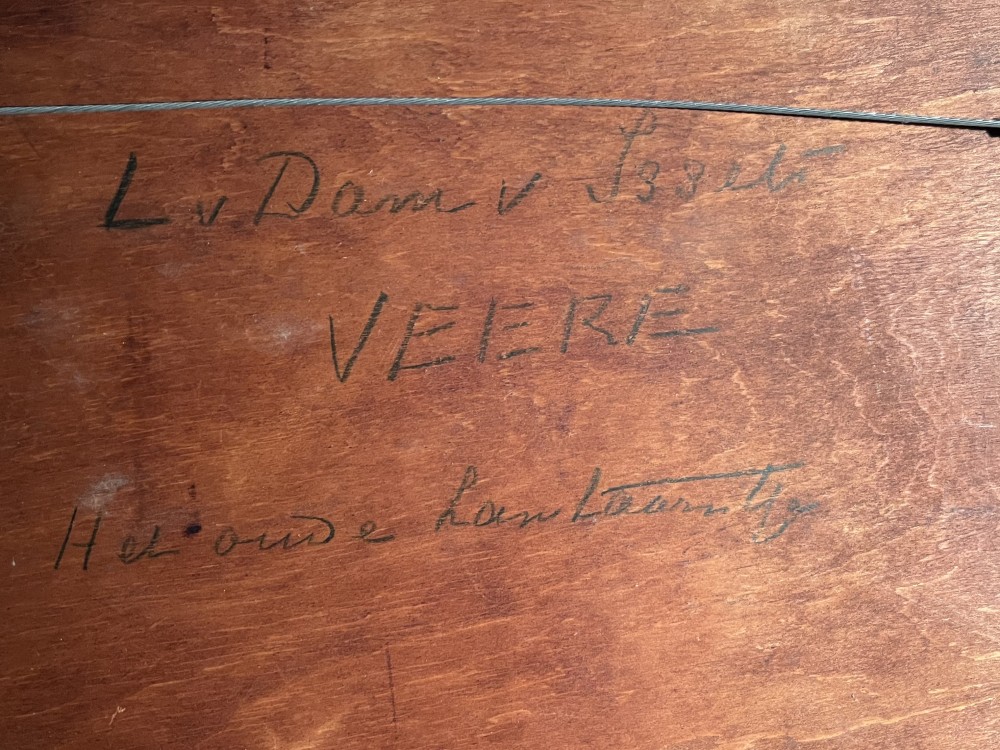 L v Dam v Isselt
VEERE
Het oude Lantaarntje